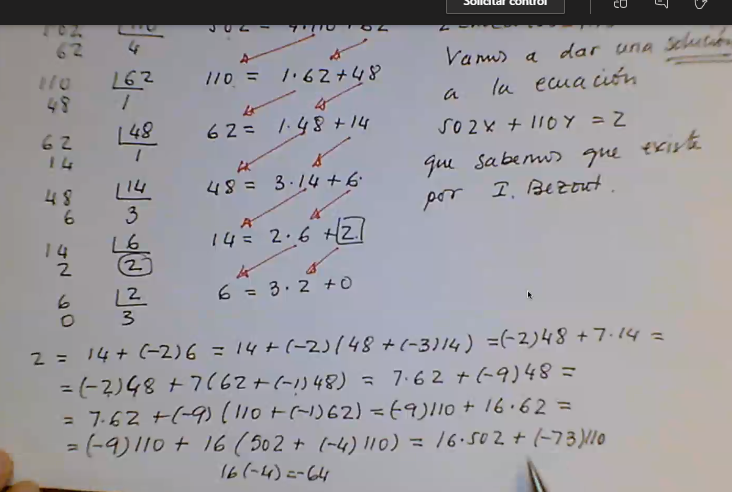 Solicitar control
502 = 4·110 + 62
62 4
110 62 110 = 1·62+48
48 1
62 48 62 = 1·48 + 14
14 1
48 14 48 = 3·14 + 6
6 3
14 6 14 = 2·6 + 2
2 2
6 2 6 = 3·2 + 0
0 3
Vamos a dar una solución
a la ecuación
502X + 110Y = 2
que sabemos que existe
por I. Bezout.
2 = 14 + (-2)6 = 14 + (-2)(48 + (-3)14) = (-2)48 + 7·14 =
= (-2)48 + 7(62 + (-1)48) = 7·62 + (-9)48 =
= 7·62 + (-9)(110 + (-1)62) = (-9)110 + 16·62 =
= (-9)110 + 16(502 + (-4)110) = 16·502 + (-73)110
16(-4) = -64